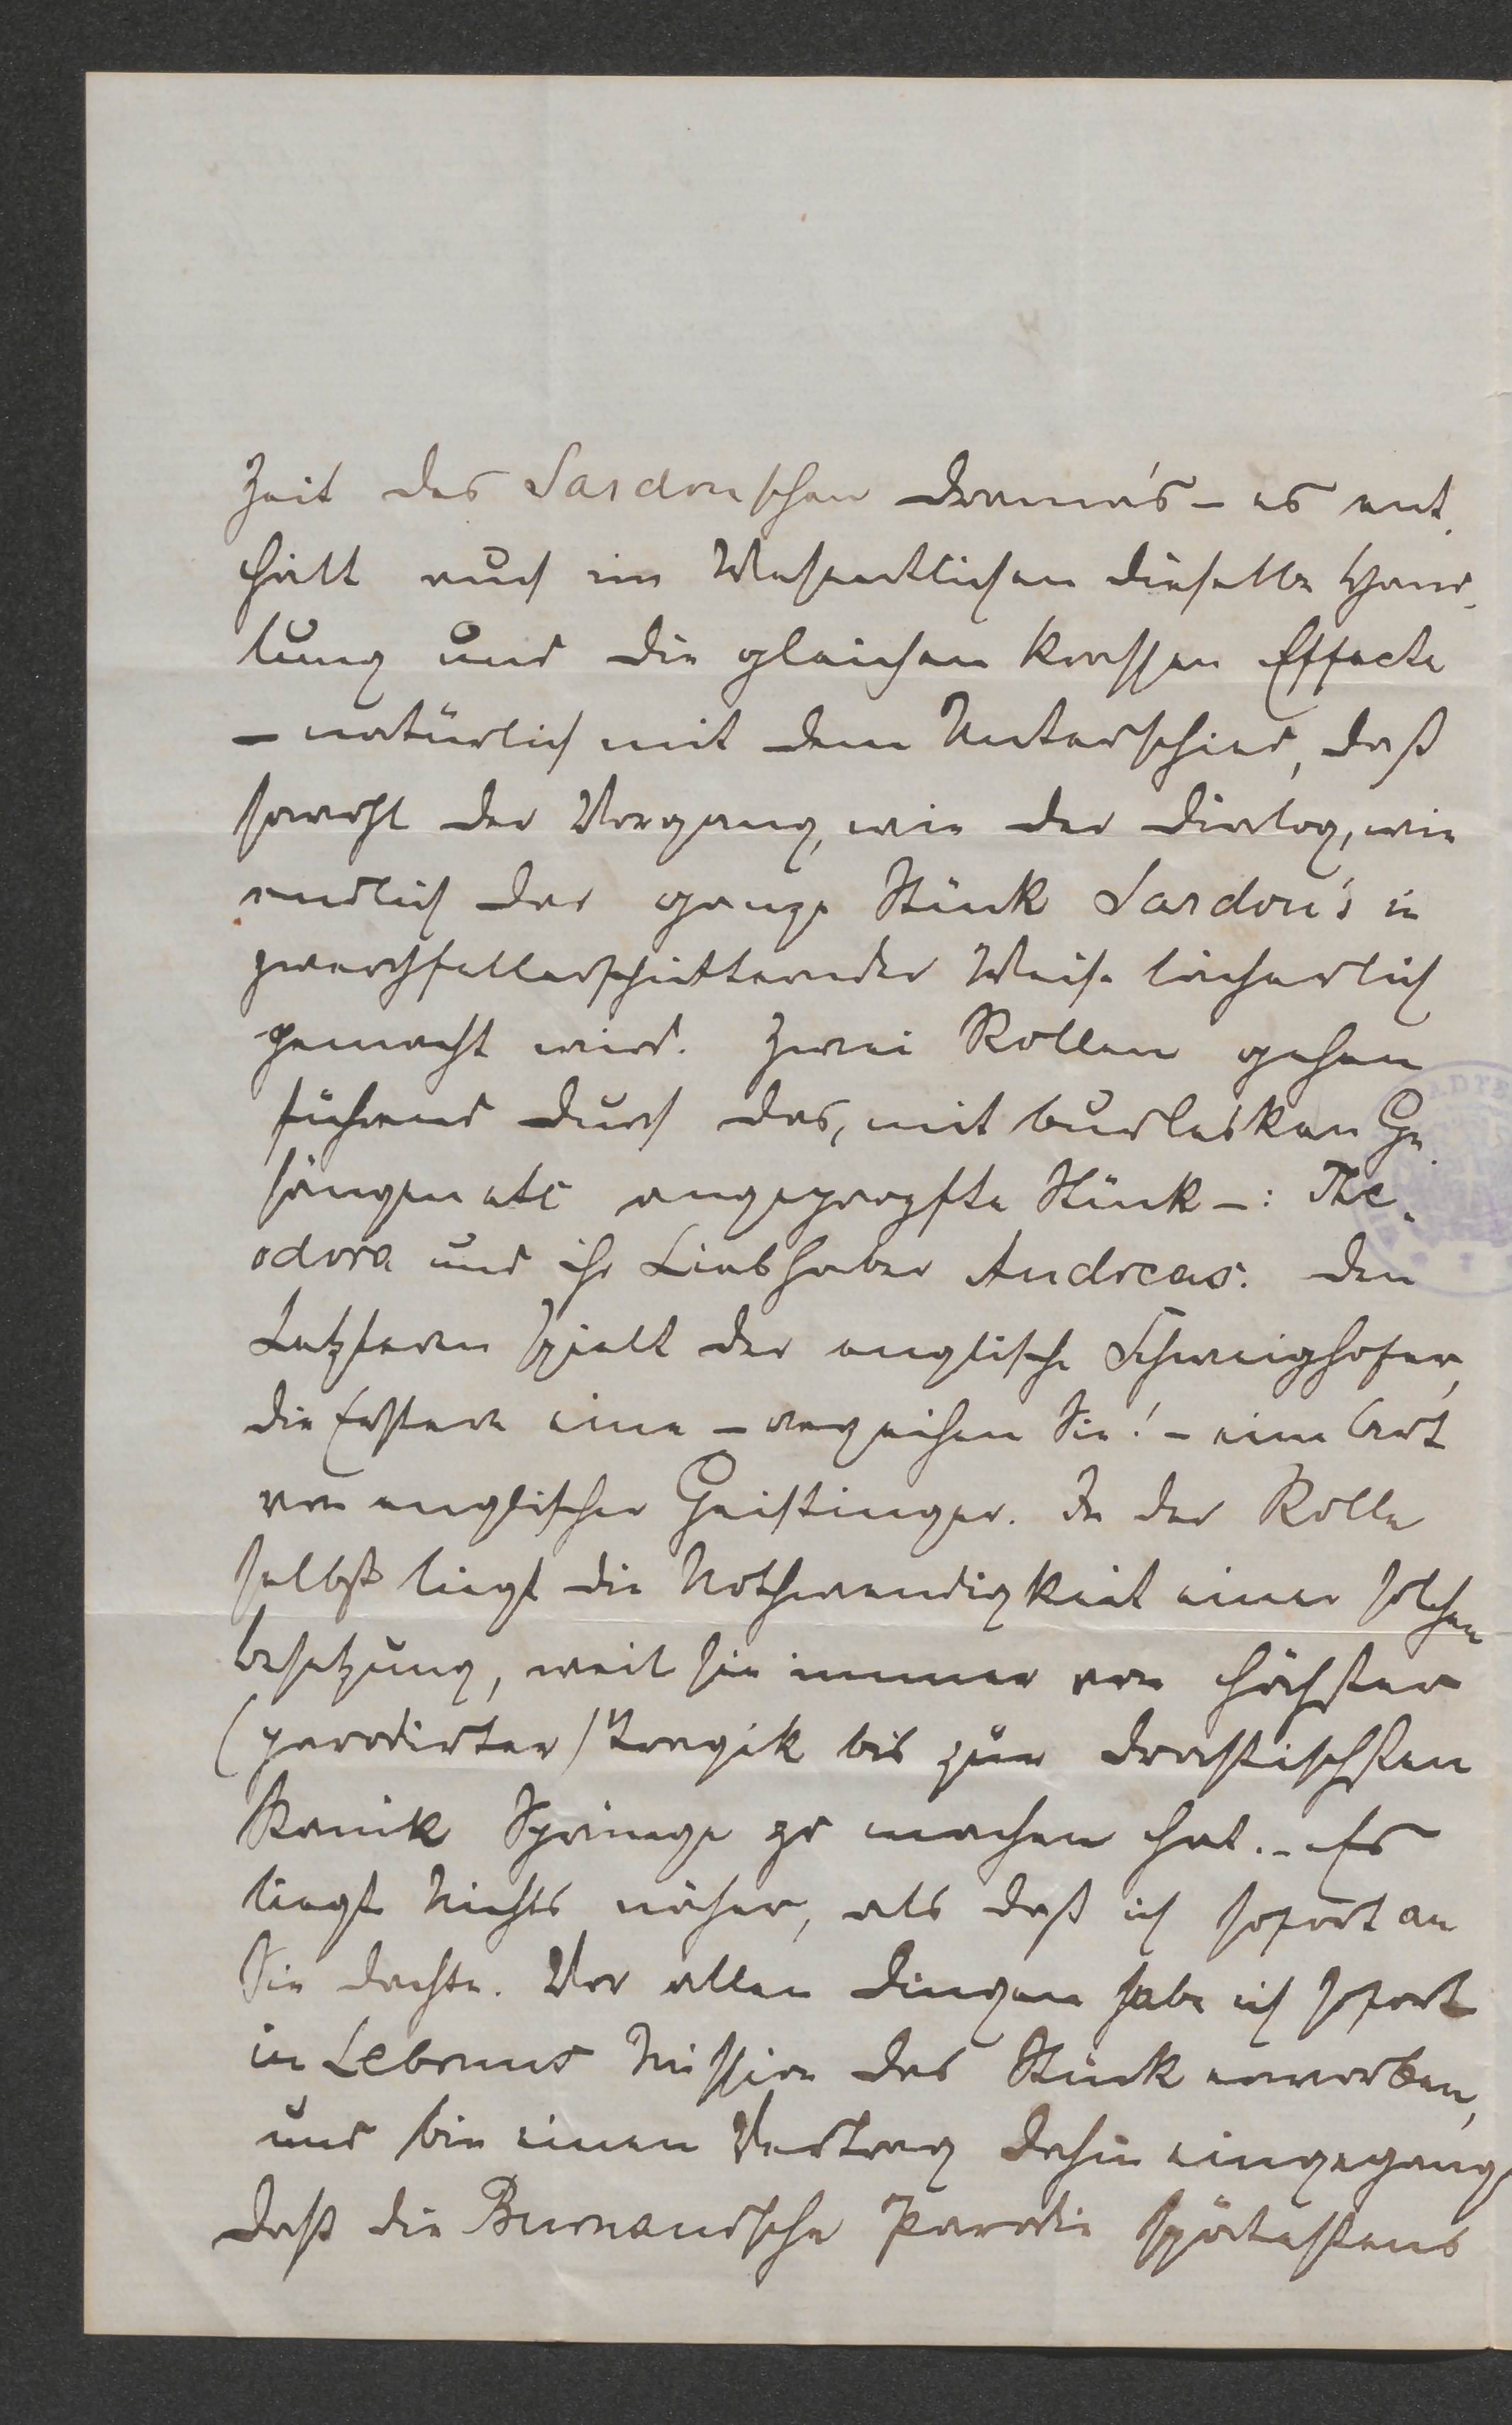 Zeit des Sardouschen Drama's – es ent-
hält auch im Wesentlichen dieselbe Hand-
lung und die gleichen krassen Effecte
– natürlich mit dem Unterschied, daß
sowohl der Vorgang, wie der Dialog, wie
endlich das ganze Stück Sardou's in
zwerchfellerschütternder Weise lächerlich
gemacht wird. Zwei Rollen gehen
führend durch das, mit burlesken Ge-
sängen etc angepropfte Stück –: The-
odora und ihr Liebhaber Andreas. Den
Letzteren spielt der englische Schweighofer,
die Erstere eine – verzeihen Sie! – eine Art
von englischer Geistinger. In der Rolle
selbst liegt die Nothwendigkeit einer solchen
Besetzung, weil sie immer von höchster
(parodirter) Tragik bis zur drastischsten
Komik Sprünge zu machen hat. – Es
liegt Nichts näher, als daß ich sofort an
Sie dachte. Vor allen Dingen habe ich sofort
in Lebruns Mission das Stück erworben,
und bin einen Vertrag dahin eingegangen
daß die Burnandsche Parodie spätestens